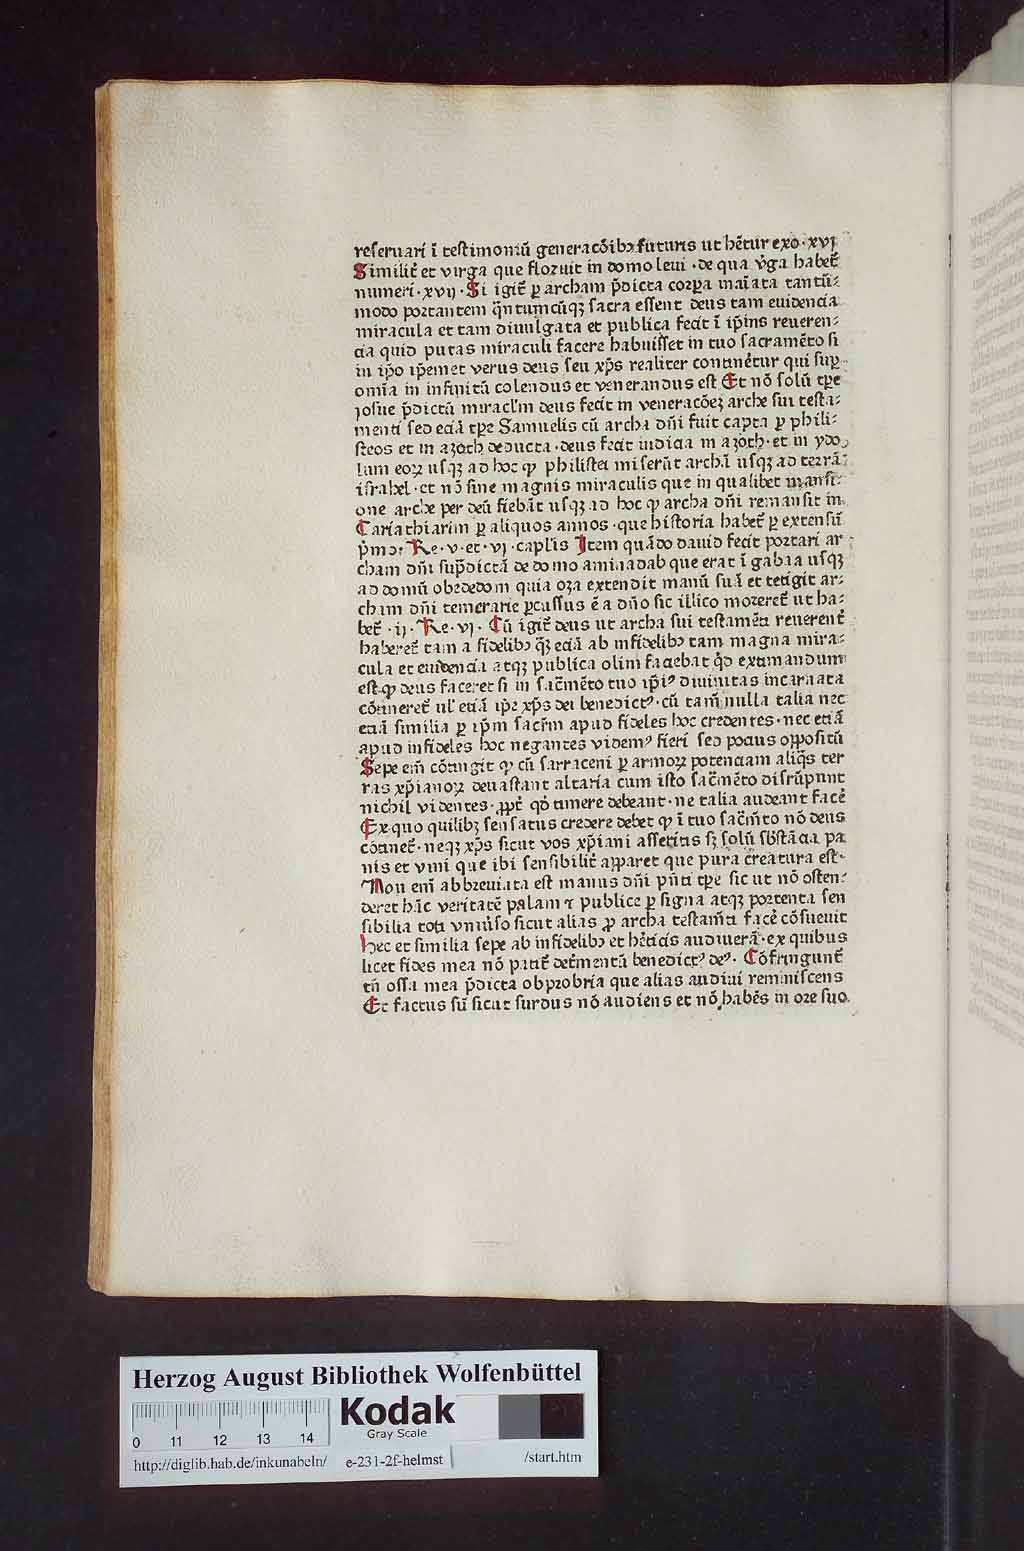 reseruari ī testimoniū generacōibꝫ futuris ut hētur exo·xvj
Similit̄ et virga que floruit in domo leui·de qua v̄ga habet̄
numeri·xvij·Si igit̄ ꝑ archam p̄dicta corꝑa maīata tantū⸗
modo portantem q̄ntumcūqꝫ sacra essent deus tam euidencia
miracula et tam diuulgata et publica fecit ī ip̄ius reueren⸗
cia quid putas miraculi facere habuisset in tuo sacramēto si
in ip̄o ip̄emet verus deus seu xp̄s realiter continēt̄ur qui suꝑ
om̄ia in infinitū colendus et venerandus est Et nō solū tp̄e
iosue p̄dictū miracl'm deus fecit in veneracōeꝫ arche sui testa⸗
menti sed eciā tp̄e Samuelis cū archa dn̄i fuit capta ꝑ phili⸗
steos et in azoth deducta·deus fecit iudicia in azoth·et in ydo
lum eoꝝ usqꝫ ad hoc ꝙ philistei miserūt archā usqꝫ ad terrā
israhel·et nō sine magnis miraculis que in qualibet mansi⸗
one arche per deū fiebāt usqꝫ ad hoc ꝙ archa dn̄i remansit in
Cariathiarim ꝑ aliquos annos·que historia habet̄ ꝑ extensū
p̄mo Re·v·et·vj·caplis Item quādo dauid fecit portari ar
cham dn̄i sup̄dictā de domo aminadab que erat ī gabaa usqꝫ
ad domū obededom quia oza extendit manū suā et tetigit ar⸗
cham dn̄i temerarie ꝑcussus ē a dn̄o sic illico moreret̄ ut ha⸗
bet̄·ij·Re·vj·Cū igit̄ deus ut archa sui testamēti reuerent̄
haberet̄ tam a fidelibꝫ q̄ꝫ eciā ab infidelibꝫ tam magna mira⸗
cula et euidencia atqꝫ publica olim faciebat q̄d extimandum
est ꝙ deus faceret si in sac̄mēto tuo ip̄iꝰ diuinitas incarnata
cōtineret̄ ul' etiā ip̄e xp̄s dei benedictꝰ·cū tam̄ nulla talia nec
etiā similia ꝑ ip̄m sacr̄m apud fideles hoc credentes·nec etiā
apud infideles hoc negantes videmꝰ fieri sed pocius oppositū
Sepe em̄ cōtingit ꝙ cū sarraceni ꝑ armoꝝ potenciam aliq̄s ter
ras xp̄ianoꝝ deuastant altaria cum isto sac̄mēto disrūpunt
nichil videntes·ꝓpt̄ qd̄ timere debeant·ne talia audeant facē
Ex quo quilibꝫ sensatus credere debet ꝙ ī tuo sac̄m̄to nō deus
cōtinet̄·neqꝫ xp̄s sicut vos xp̄iani asseritis sꝫ solū sb̄stācia pa
nis et vini que ibi sensibilit̄ apparet que pura creatura est·
Non em̄ abbreuiata est manus dn̄i pn̄ti tp̄e sic ut nō osten⸗
deret hāc veritatē palam ⁊ publice ꝑ signa atqꝫ portenta sen
sibilia toti vniūso sicut alias ꝓ archa testam̄ti facē cōsueuit
Hec et similia sepe ab infidelibꝫ et hēticis audiuerā·ex quibus
licet fides mea nō patit̄ det̄mentū benedictꝰ deꝰ·Cōfringunt̄
tn̄ ossa mea p̄dicta obprobria que alias audiui reminiscens
Et factus sū sicut surdus nō audiens et nō habēs in ore suo
Herzog August Bibliothek Wolfenbüttel
0 11 12 13 14
Kodak
Gray Scale
http://diglib.hab.de/inkunabeln/ e-231-2f-helmst /start.htm